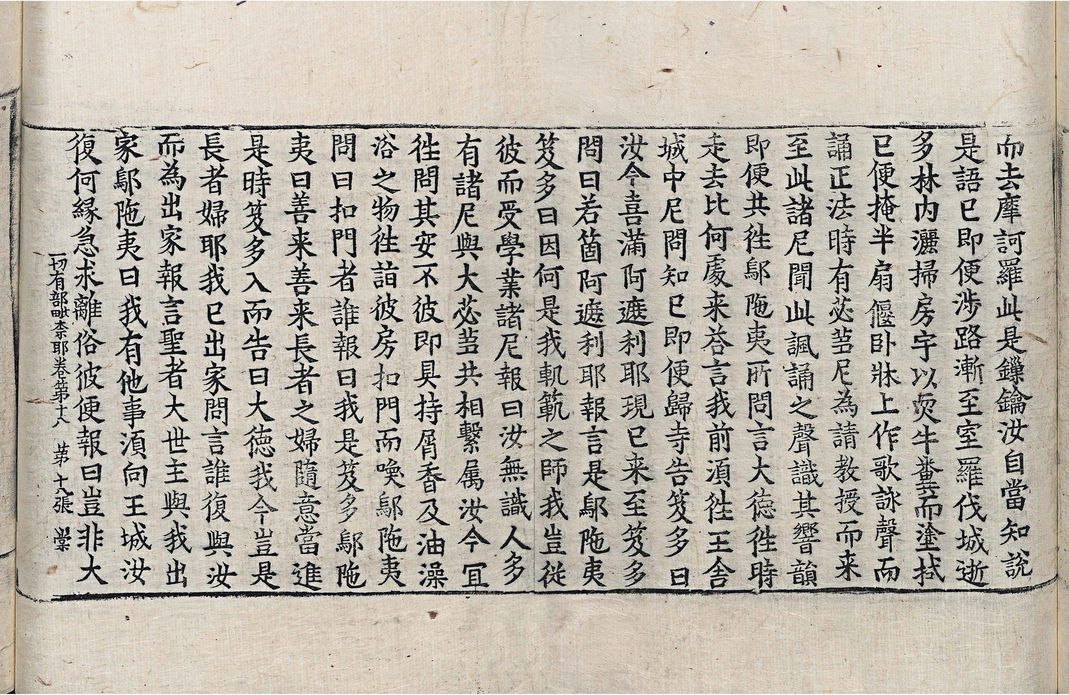 而去摩訶羅此是鏁鑰汝自當知說
是語已即便涉路漸至室羅伐城逝
多林内灑掃房宇以瞿牛糞而塗拭
已便掩半扇偃卧牀上作歌詠聲而
誦正法時有苾蒭尼為請教授而来
至此諸尼聞此諷誦之聲識其響韻
即便共徃鄔陁夷所問言大德徃時
走去比何處来荅言我前須徃王舍
城中尼問知已即便歸寺告笈多曰
汝今喜滿阿遮利耶現已来至笈多
問曰若箇阿遮利耶報言是鄔陁夷
笈多曰因何是我軌範之師我豈從
彼而受學業諸尼報曰汝無識人多
有諸尼與大苾蒭共相繫属汝今冝
徃問其安不彼即具持屑香及油澡
浴之物徃詣彼房扣門而喚鄔陁夷
問曰扣門者誰報曰我是笈多鄔陁
夷曰善来善来長者之婦隨意當進
是時笈多入而告曰大德我今豈是
長者婦耶我已出家問言誰復與汝
而為出家報言聖者大世主與我出
家鄔陁夷曰我有他事湏向王城汝
復何緣急求離俗彼便報曰豈非大
一切有部毗柰耶卷第十八　第十九張　棠